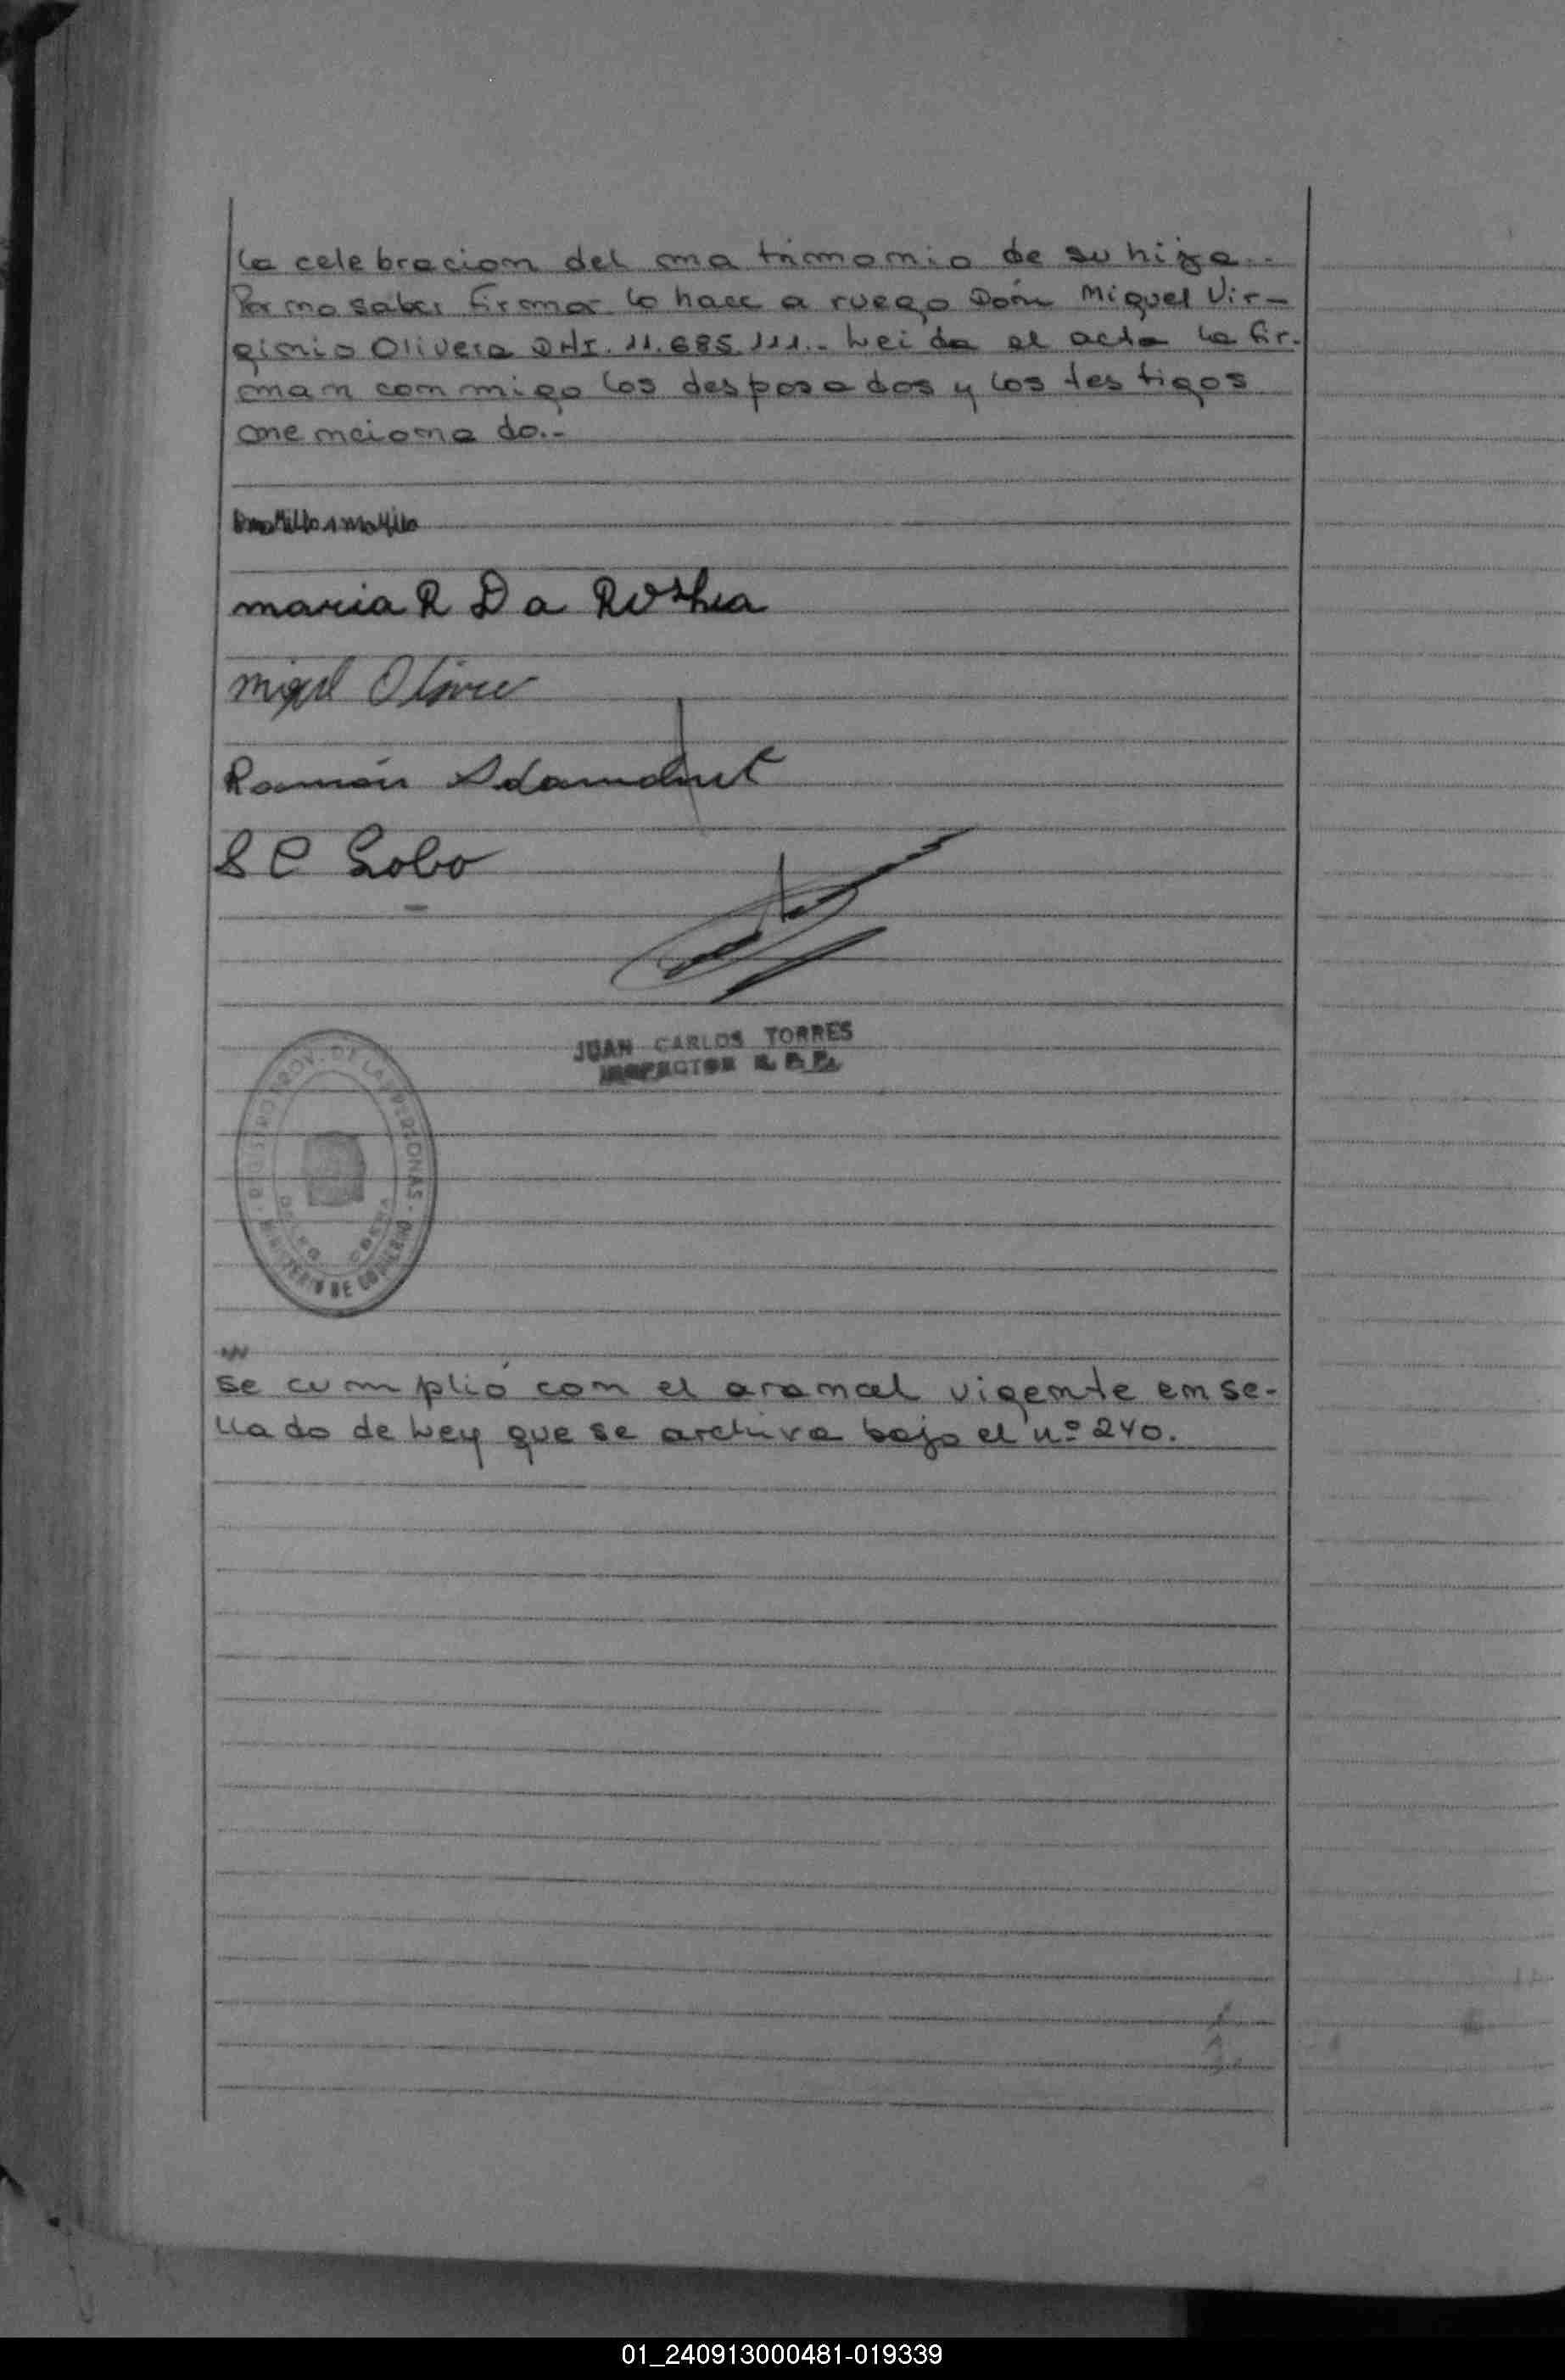 la celebracion del matrimonio de su hija..
Por no saber firmar lo hace a ruego Don Miguel Vir-
ginio Olivera DNI. 11.685.111.- Leida el acta la fir-
man conmigo los desposados y los testigos
mencionado.-
maria R Da Roshia
Miguel
Ramón
S C Lobo
JUAN CARLOS TORRES
INSPECTOR
REGISTRO PROV. DE LAS PERSONAS
MINISTERIO DE GOBIERNO
se cumplió con el arancel vigente en se-
llado de Ley que se archiva bajo el nº 240.
01_240913000481-019339